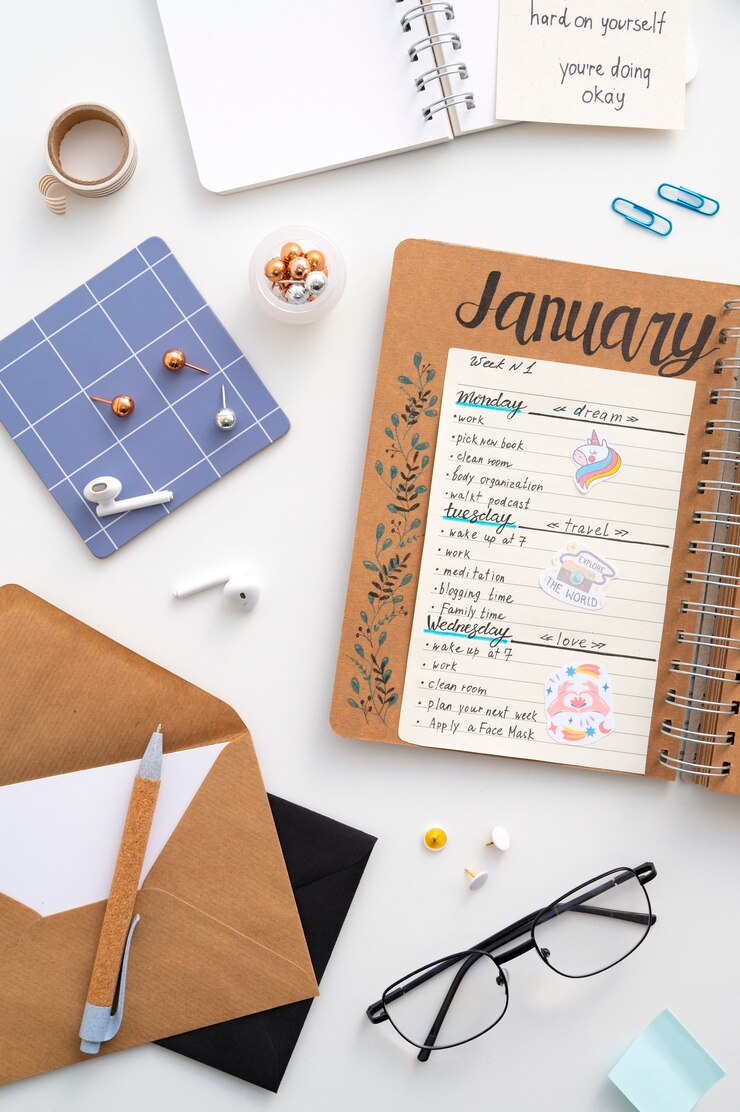 hard on yourself
you're doing
okay
January
Week N1
Monday
« dream »
• work
• pick new book
• clean room
• body organization
• walkt podcast
tuesday
« travel »
• wake up at 7
• work
• meditation
• blogging time
• Family time
EXPLORE
THE WORLD
Wednesday
« love »
• wake up at 7
• work
• clean room
• plan your next week
• Apply a Face Mask